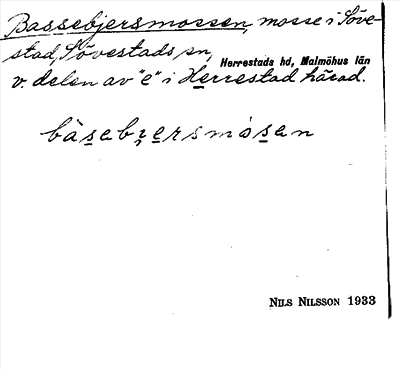 Bassebjersmossen, mosse i Söve-
stad, Sövestads sn, Herrestads hd, Malmöhus län
v. delen av "e" i Herrestad härad.
bàsebjersmósen
NILS NILSSON 1933